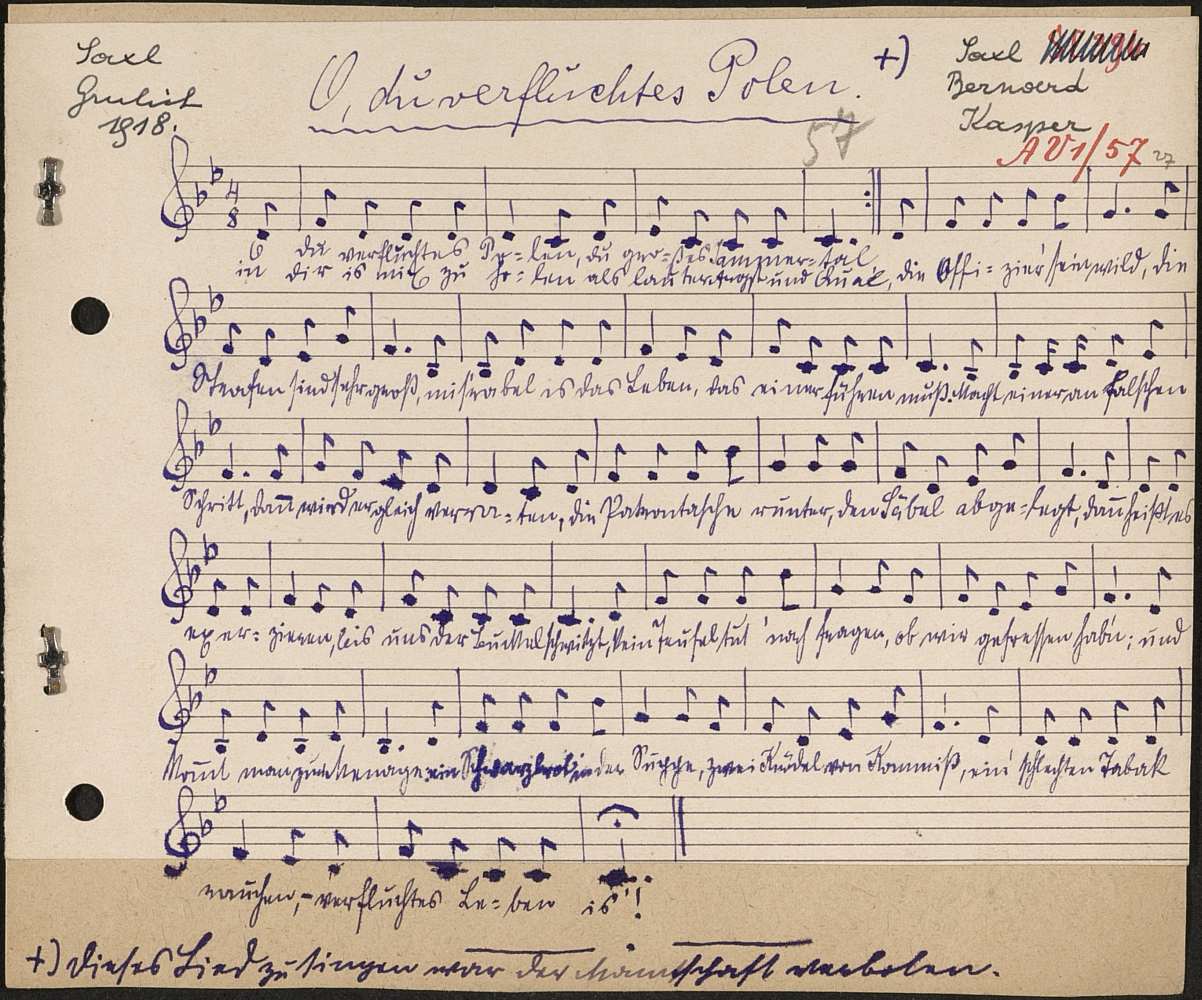 Saxl
Grulich
1918.
O, du verfluchtes Polen. +)
57
Saxl
Bernard
Kasper
AV1/57
27
4
8
O du verfluchtes Po-len, du gro-ßes Jammer-tal
in dir is nix zu ho-len als lauter Angst und Qual, die Offi-zier' sein wild, die
Strafen sind sehr groß, miserabel is das Leben, das einer führen muß. Macht einer an falschen
Schritt, dann wird er gleich verra-ten, die Patrontasche runter, den Säbel abge-legt, dann heißt es
exer-zieren, bis uns der Buckel schwitzt, kein Teufel tut nach fragen, ob wir gefressen hab'n; und
kommt man zur Menage: ein Schwarzbrot in der Suppe, zwei Knödel von Kommiß, ein' schlechten Tabak
rauchen, - verfluchtes Le-ben is'!
+) Dieses Lied zu singen war der Mannschaft verboten.